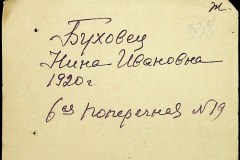 ж.
338
Буховец
Нина Ивановна
1920 г
6ая поперечная №19